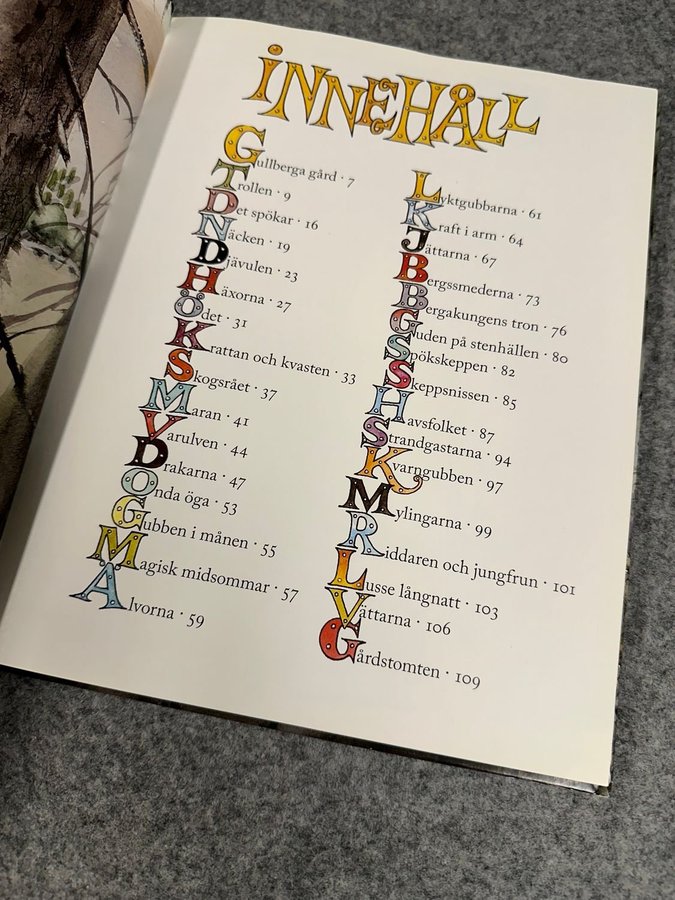 INNEHÅLL
Gullberga gård · 7
Trollen · 9
Det spökar · 16
Näcken · 19
Djävulen · 23
Häxorna · 27
Ödet · 31
Krattan och kvasten · 33
Skogsrået · 37
Maran · 41
Varulven · 44
Drakarna · 47
Onda öga · 53
Gubben i månen · 55
Magisk midsommar · 57
Alvorna · 59
Lyktgubbarna · 61
Kraft i arm · 64
Jättarna · 67
Bergssmederna · 73
Bergakungens tron · 76
Guden på stenhällen · 80
Spökskeppen · 82
Skeppsnissen · 85
Havsfolket · 87
Strandgastarna · 94
Kvarngubben · 97
Mylingarna · 99
Riddaren och jungfrun · 101
Lusse långnatt · 103
Vättarna · 106
Gårdstomten · 109